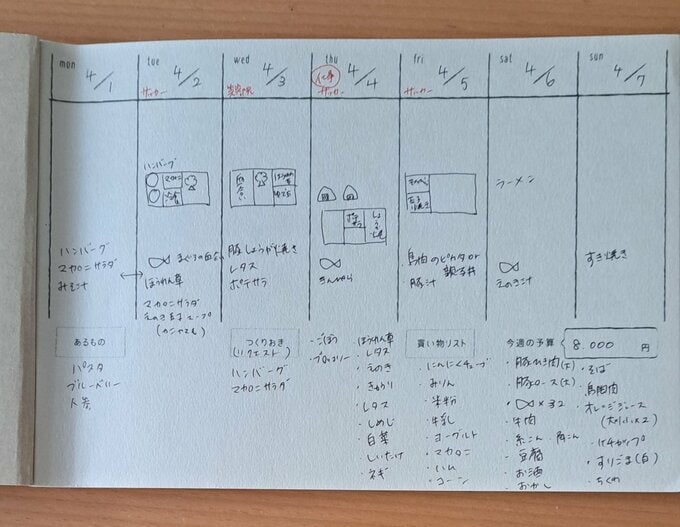 mon 4/1
tue 4/2
wed 4/3
thu 4/4
fri 4/5
sat 4/6
sun 4/7
サッカー
仕事
サッカー
サッカー
ハンバーグ
マカロニ
ラーメン
ハンバーグ
マカロニサラダ
みそ汁
まぐろの
ほうれん草
マカロニサラダ
えのき
豚しょうが焼き
レタス
ポテサラ
きんぴら
鳥肉のピカタor
豚汁
えのき汁
すき焼き
あるもの
パスタ
ブルーベリー
人参
つくりおき
(リクエスト)
ハンバーグ
マカロニサラダ
・ごぼう
・ブロッコリー
ほうれん草
・レタス
・えのき
・きゅうり
・レタス
・しめじ
・白菜
・しいたけ
ネギ
買い物リスト
・にんにくチューブ
・みりん
・米粉
・牛乳
・ヨーグルト
・マカロニ
・ハム
・コーン
今週の予算 8.000 円
・豚ひき肉(大)
・豚ロース(大)
×32
・牛肉
・糸こん 角こん
・豆腐
・お酒
・おかし
・そば
・鳥肉
・オレンジジュース
・ケチャップ
・すりごま(白)
・ちくわ